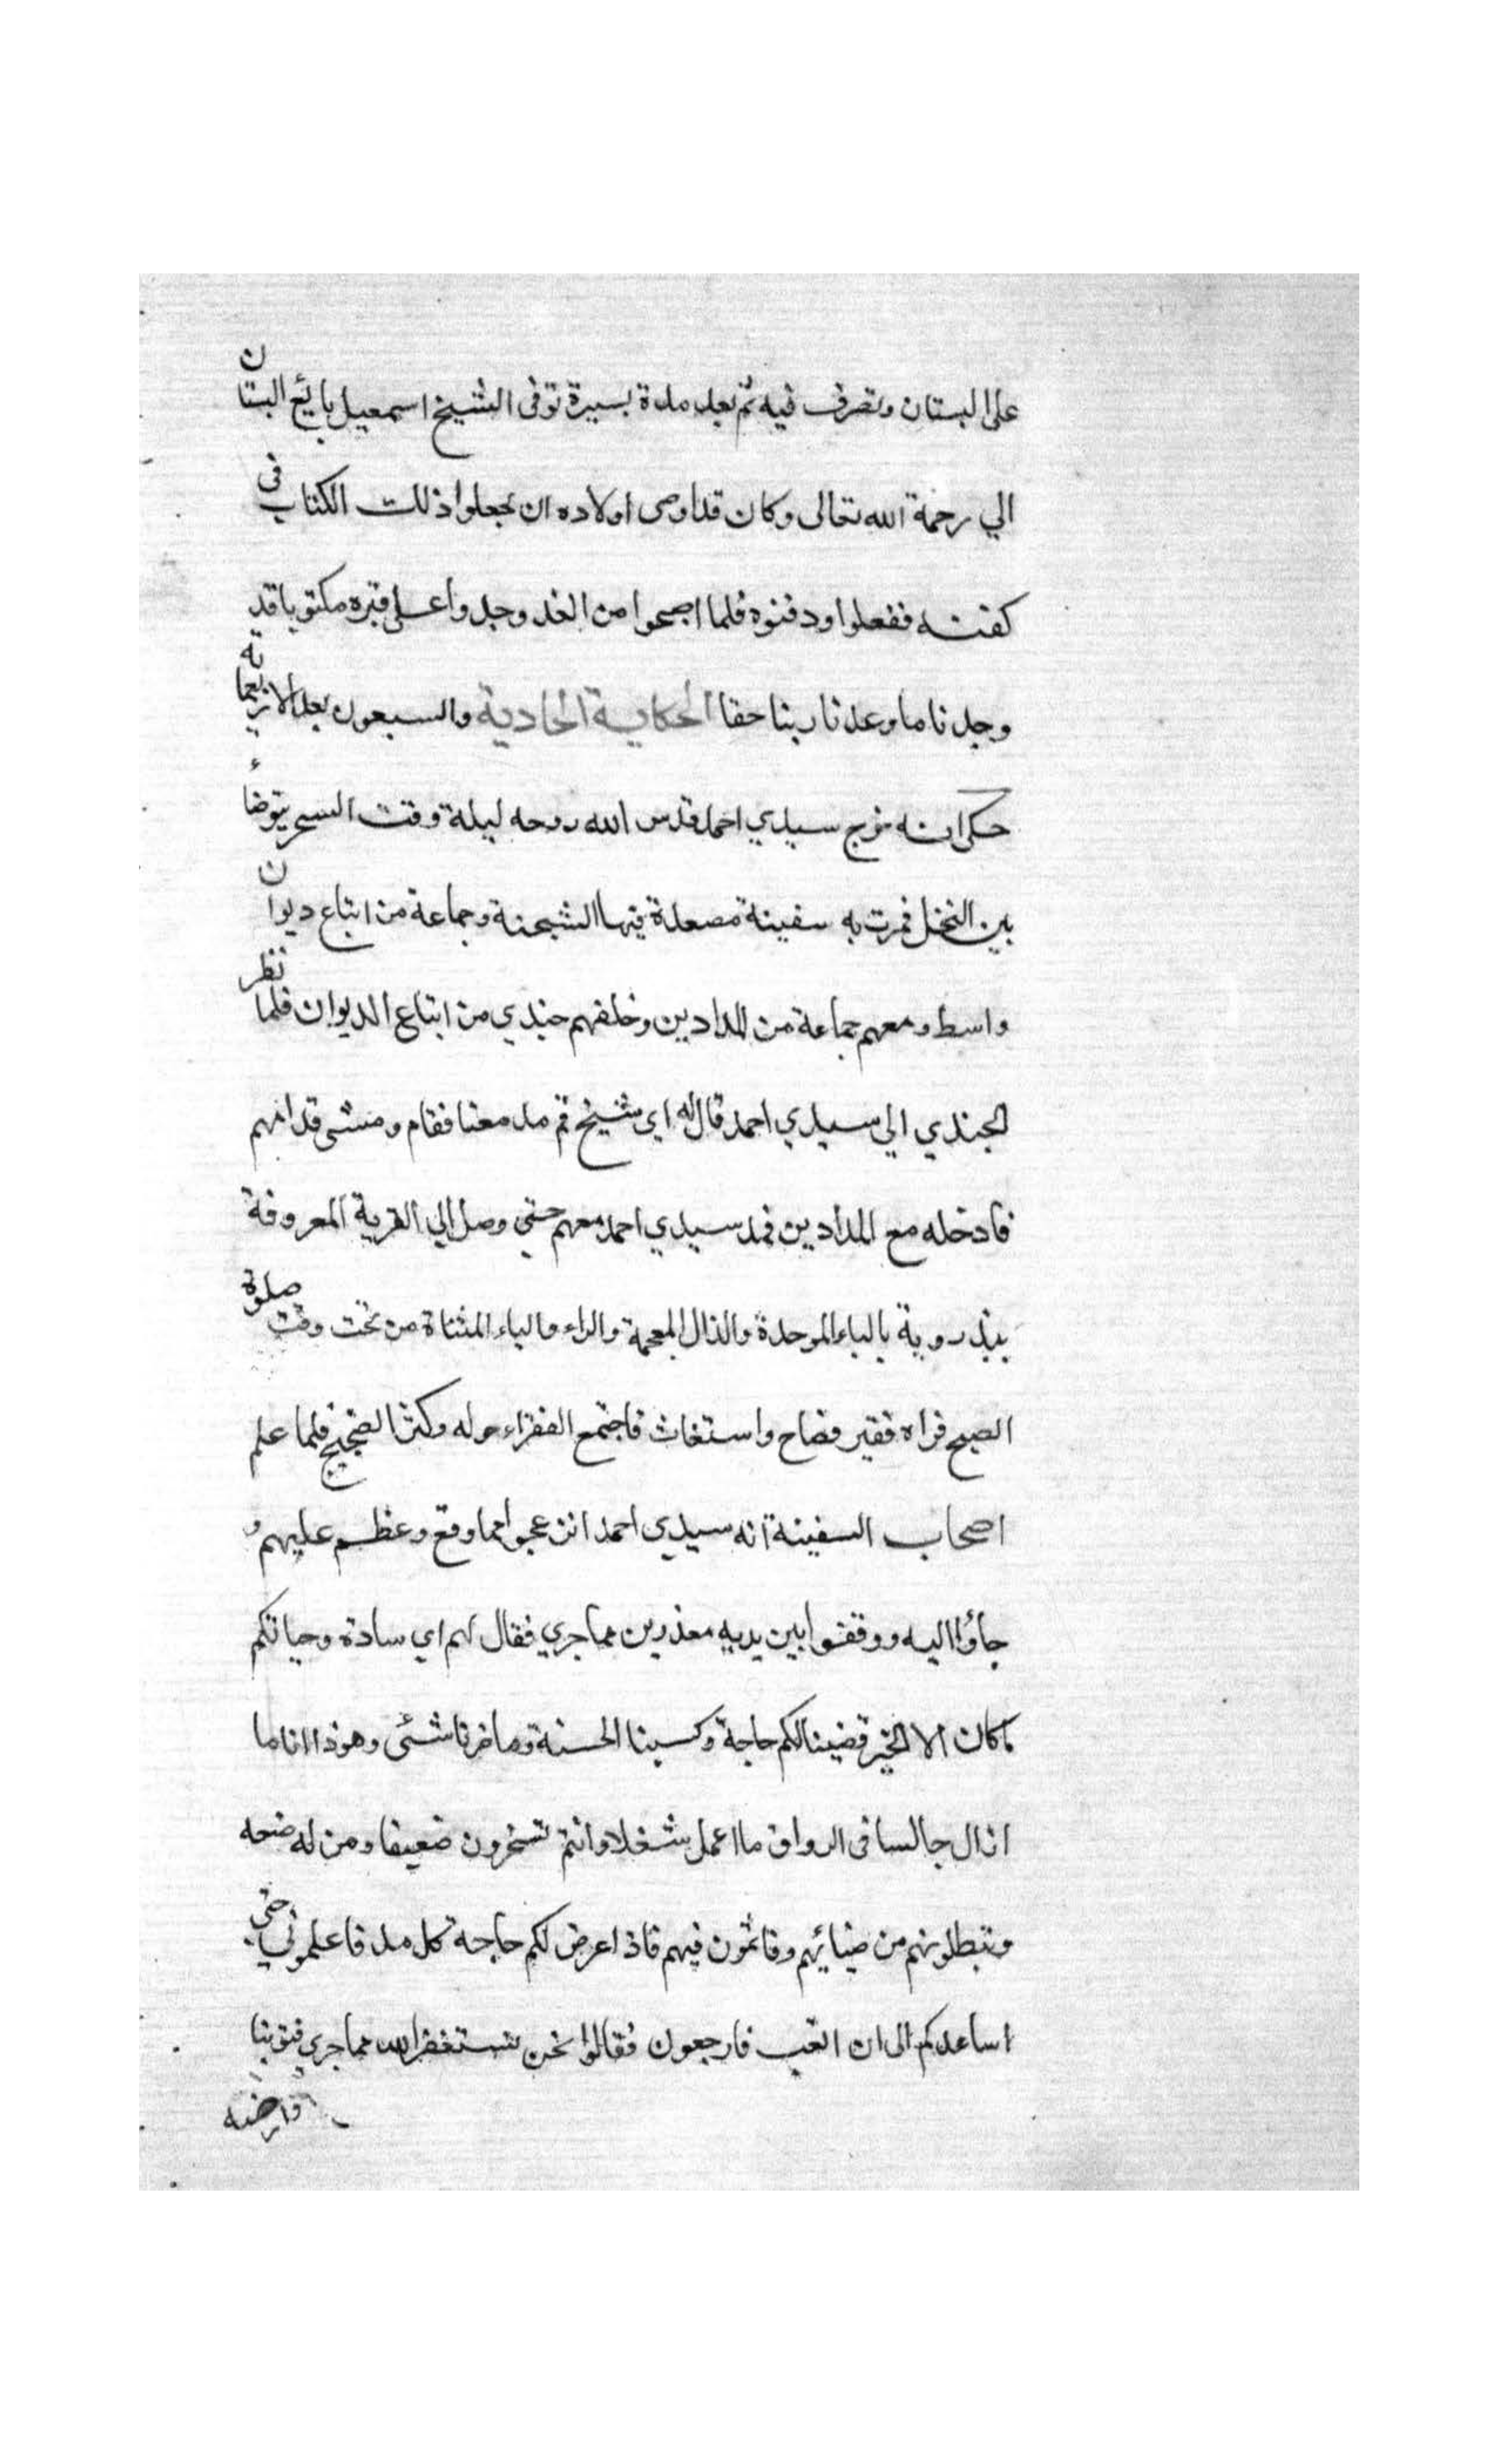 على البستان وتصرف فيه ثم بعد مدة يسيرة توفى الشيخ اسمعيل بائع البستان
الي رحمة الله تعالى وكان قد اوصى اولاده ان يجعلوا ذلك الكتاب في
كفنه ففعلوا ودفنوه فلما اصبحوا من الغد وجدوا على قبره مكتوبا قد
وجدنا ما وعدنا ربنا حقا الحكاية الحادية والسبعون بعد الاربعمائة
حكى انه خرج سيدي احمد قدس الله روحه ليلة وقت السحر يتوضاء
بين النخل فمرت به سفينة مصعدة فيها الشحنة وجماعة من اتباع ديوان
واسط ومعهم جماعة من المدادين وخلفهم جندي من اتباع الديوان فلما نظر
الجندي الي سيدي احمد قال له اي شيخ قم مد معنا فقام ومشى قدامهم
فادخله مع المدادين فمد سيدي احمد معهم حتي وصل الي القرية المعروفة
ببذروية بالباء الموحدة والذال المعجمة والراء والياء المثناة من تحت وقت صلوة
الصبح فراه فقير فصاح واستغاث فاجتمع الفقراء حوله وكثر الضجيج فلما علم
اصحاب السفينة انه سيدي احمد انزعجوا مما وقع وعظم عليهم و
جاؤا اليه ووقفوا بين يديه معذرين مما جري فقال لهم اي سادة وحياتكم
ما كان الا الخير قضينا لكم حاجة وكسبنا الحسنة وما ضرنا شئى وهوذا انا ما
ازال جالسا فى الرواق ما اعمل شغلا وانتم تسخرون ضعيفا ومن له صنعه
وتبطلونهم من ضيائهم وقائمون فيهم فاذا عرض لكم حاجة كل مد فاعلموني حتي
اساعدكم الى ان اتعب فارجعون فقالوا نحن نستغفر الله مما جري فتوبنا
وارضه